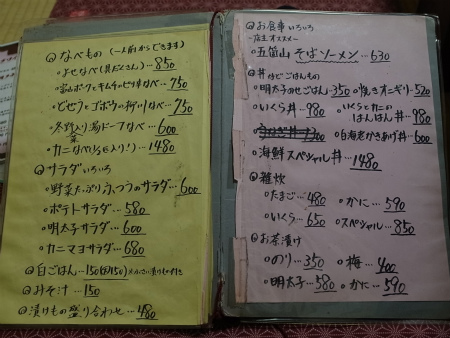 ◎なべもの (一人前からできます)
○よせなべ(具だくさん)…850
○富山ポークとキムチのピリ辛なべ…750
○どぜうとゴボウの柳川なべ…750
○冬野菜入り湯ドーフなべ…600
○カニなべ(ゾウスイ入り!)…1480
◎サラダいろいろ
○野菜たっぷりふつうのサラダ…600
○ポテトサラダ…580
○明太子サラダ…600
○カニマヨサラダ…680
◎白ごはん…150
◎みそ汁…150
◎漬けもの盛り合わせ…480
◎お食事いろいろ
-店主オススメ-
○五箇山そばソーメン…630
◎丼ほかごはんもの
○明太子のせごはん…350 ○焼きオニギリ…520
○いくら丼…980 ○いくらとカニのはんはん丼…980
○白海老かきあげ丼…600
○海鮮スペシャル丼…1480
◎雑炊
○たまご…480 ○かに…590
○いくら…650 ○スペシャル…850
◎お茶漬け
○のり…350 ○梅…400
○明太子…580 ○かに…590